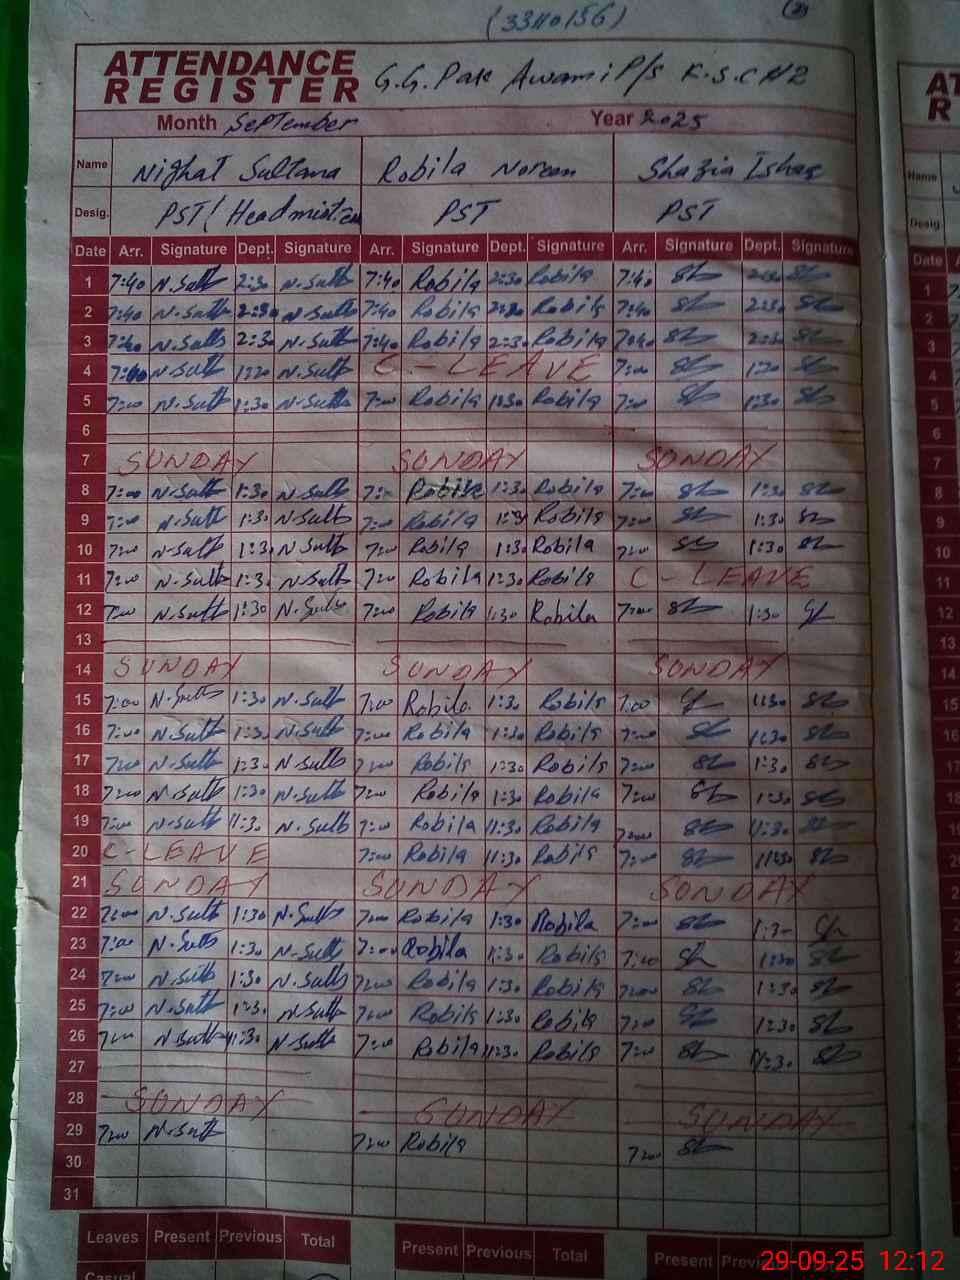 (33110156)
(2)
ATTENDANCE REGISTER G.G. Pak Awami P/s K.S.C N2
Month September Year 2025
Name Nighat Sultana Robila Noreen Shazia Ishaq
Desig. PST/Headmistress PST PST
Date Arr. Signature Dept. Signature Arr. Signature Dept. Signature Arr. Signature Dept. Signature
1 7:40 N.Sult 2:30 N.Sult 7:40 Robila 2:30 Robila 7:40 2:30
2 7:40 N.Sult 2:30 N.Sult 7:40 Robila 2:30 Robila 7:40 2:30
3 7:40 N.Sult 2:30 N.Sult 7:40 Robila 2:30 Robila 7:40 2:30
4 7:00 N.Sult 1:30 N.Sult C-LEAVE 7:00 1:30
5 7:00 N.Sult 1:30 N.Sult 7:00 Robila 1:30 Robila 7:00 1:30
6
7 SUNDAY SUNDAY SUNDAY
8 7:00 N.Sult 1:30 N.Sult 7:00 Robila 1:30 Robila 7:00 1:30
9 7:00 N.Sult 1:30 N.Sult 7:00 Robila 1:30 Robila 7:00 1:30
10 7:00 N.Sult 1:30 N.Sult 7:00 Robila 1:30 Robila 7:00 1:30
11 7:00 N.Sult 1:30 N.Sult 7:00 Robila 1:30 Robila C-LEAVE
12 7:00 N.Sult 1:30 N.Sult 7:00 Robila 1:30 Robila 7:00 1:30
13
14 SUNDAY SUNDAY SUNDAY
15 7:00 N.Sult 1:30 N.Sult 7:00 Robila 1:30 Robila 7:00 1:30
16 7:00 N.Sult 1:30 N.Sult 7:00 Robila 1:30 Robila 7:00 1:30
17 7:00 N.Sult 1:30 N.Sult 7:00 Robila 1:30 Robila 7:00 1:30
18 7:00 N.Sult 1:30 N.Sult 7:00 Robila 1:30 Robila 7:00 1:30
19 7:00 N.Sult 11:30 N.Sult 7:00 Robila 11:30 Robila 7:00 11:30
20 C-LEAVE 7:00 Robila 11:30 Robila 7:00 11:30
21 SUNDAY SUNDAY SUNDAY
22 7:00 N.Sult 1:30 N.Sult 7:00 Robila 1:30 Robila 7:00 1:30
23 7:00 N.Sult 1:30 N.Sult 7:00 Robila 1:30 Robila 7:00 1:30
24 7:00 N.Sult 1:30 N.Sult 7:00 Robila 1:30 Robila 7:00 1:30
25 7:00 N.Sult 1:30 N.Sult 7:00 Robila 1:30 Robila 7:00 1:30
26 7:00 N.Sult 11:30 N.Sult 7:00 Robila 11:30 Robila 7:00 11:30
27
28 SUNDAY SUNDAY SUNDAY
29 7:00 N.Sult 7:00 Robila 7:00
30
31
Leaves Present Previous Total Present Previous Total Present
Casual
29-09-25 12:12